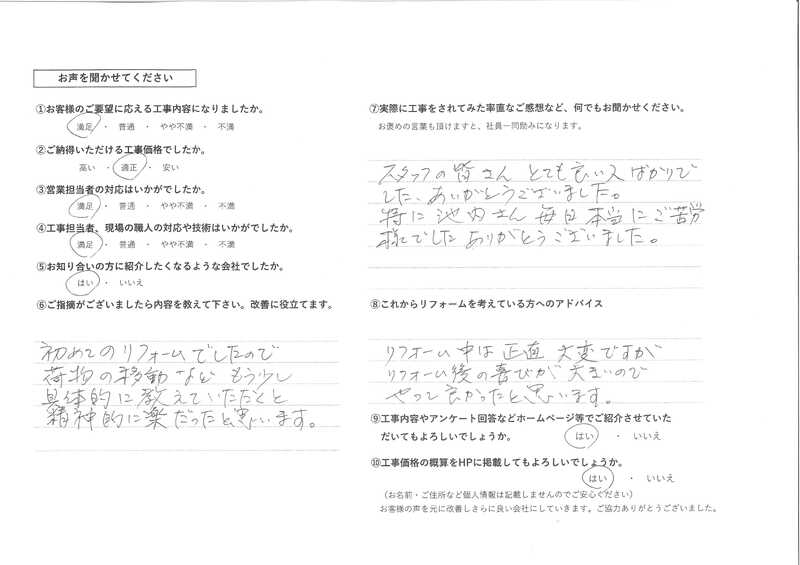 お声を聞かせてください
①お客様のご要望に応える工事内容になりましたか。
満足 ・ 普通 ・ やや不満 ・ 不満
②ご納得いただける工事価格でしたか。
高い ・ 適正 ・ 安い
③営業担当者の対応はいかがでしたか。
満足 ・ 普通 ・ やや不満 ・ 不満
④工事担当者、現場の職人の対応や技術はいかがでしたか。
満足 ・ 普通 ・ やや不満 ・ 不満
⑤お知り合いの方に紹介したくなるような会社でしたか。
はい ・ いいえ
⑥ご指摘がございましたら内容を教えて下さい。改善に役立てます。
初めてのリフォームでしたので
荷物の移動など もう少し
具体的に教えていただくと
精神的に楽だったと思います。
⑦実際に工事をされてみた率直なご感想など、何でもお聞かせください。
お褒めの言葉も頂けますと、社員一同励みになります。
スタッフの皆さん とても良い人ばかりで
した、ありがとうございました。
特に池内さん毎日本当にご苦労
様でした ありがとうございました。
⑧これからリフォームを考えている方へのアドバイス
リフォーム中は正直大変ですが
リフォーム後の喜びが大きいので
やって良かったと思います。
⑨工事内容やアンケート回答などホームページ等でご紹介させていた
だいてもよろしいでしょうか。 はい ・ いいえ
⑩工事価格の概算をHPに掲載してもよろしいでしょうか。
はい ・ いいえ
（お名前・ご住所など個人情報は記載しませんのでご安心ください）
お客様の声を元に改善しさらに良い会社にしていきます。ご協力ありがとうございました。